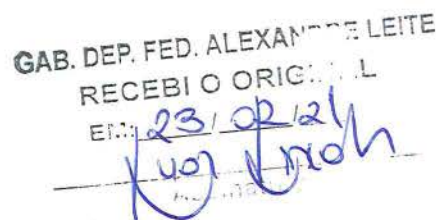 GAB. DEP. FED. ALEXANDRE LEITE
RECEBI O ORIGINAL
EM: 23/02/21